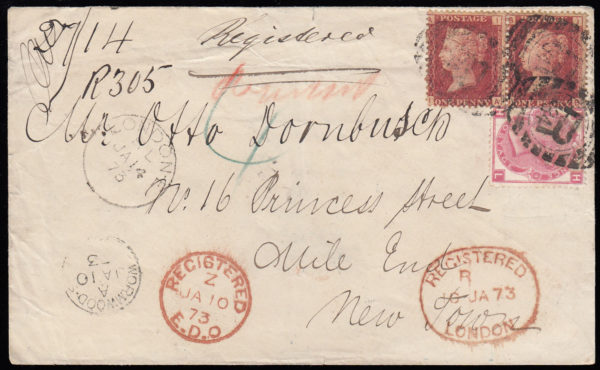 714
Registered
R305
Mr. Otto Dornbusch
No. 16 Princess Street
Mile End
New Town
POSTAGE
ONE PENNY
POSTAGE
ONE PENNY
H
L
LONDON
JA
73
WORMWOOD
JA 10
73
REGISTERED
Z
JA 10
73
E.D.O
REGISTERED
R
JA 73
LONDON